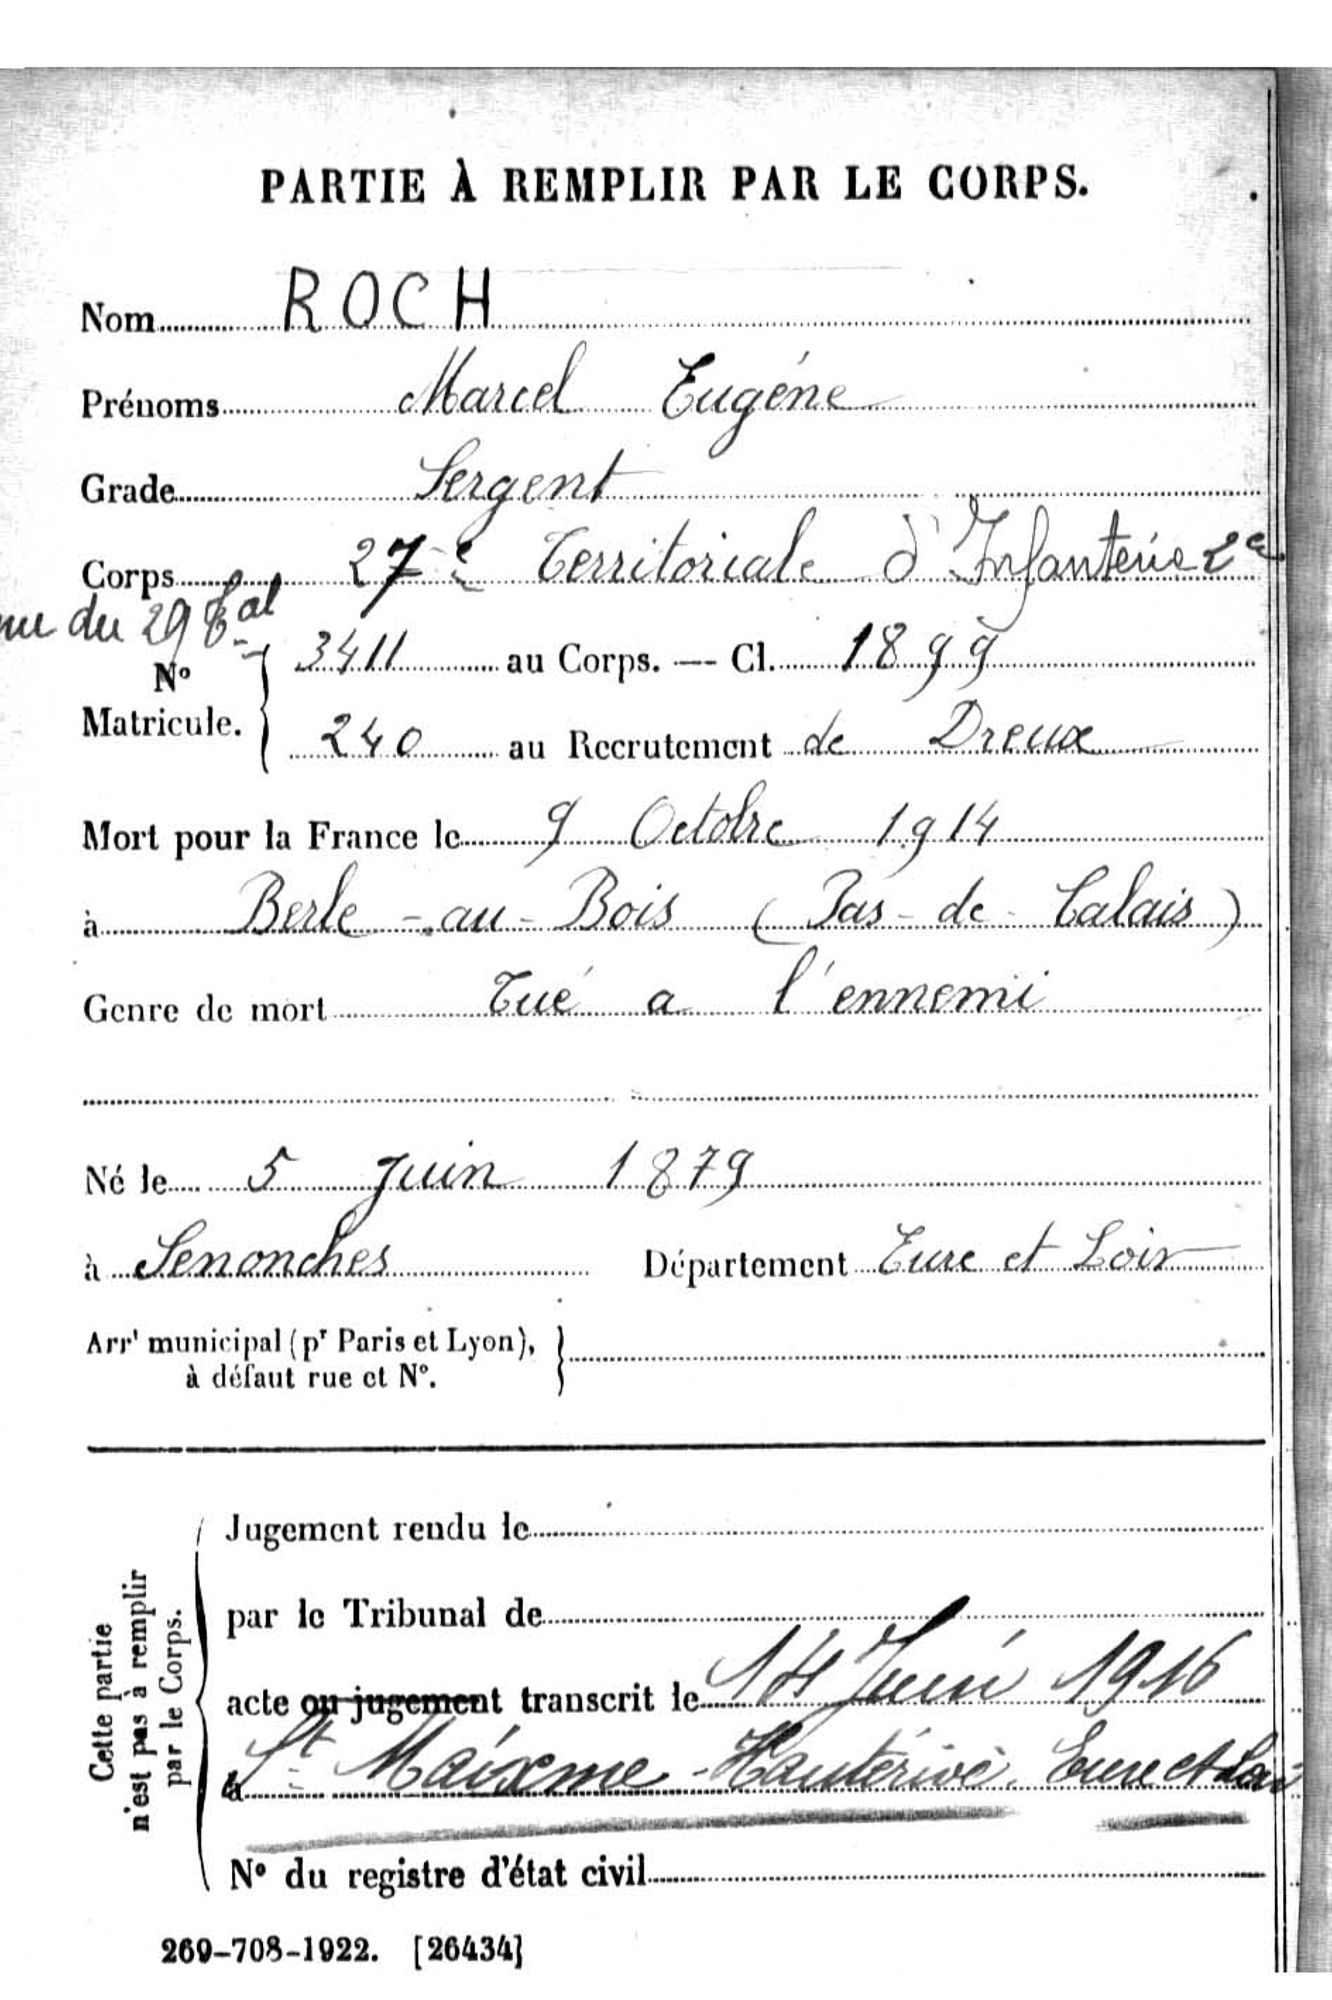 PARTIE À REMPLIR PAR LE CORPS.
Nom ROCH
Prénoms Marcel Eugéne
Grade Sergent
Corps 27e Territoriale d'Infanterie 2e
du 29 Bal
No Matricule. 3411 au Corps. — Cl. 1899
240 au Recrutement de Dreux
Mort pour la France le 9 Octobre 1914
à Berle-au-Bois (Pas-de-Calais)
Genre de mort Tué a l'ennemi
Né le 5 Juin 1879
à Senonches Département Eure et Loir
Arrt municipal (pr Paris et Lyon),
à défaut rue et No.
Cette partie
n'est pas à remplir
par le Corps.
Jugement rendu le
par le Tribunal de
acte ou jugement transcrit le 14 Juin 1916
à St Maixme-Hauterive. Eure et Loir
No du registre d'état civil
269-708-1922. [26434]